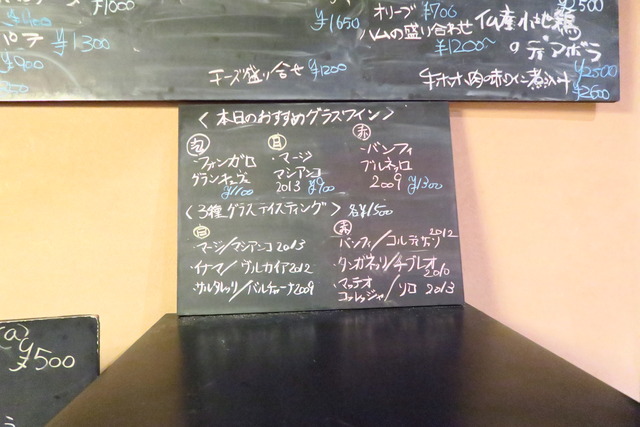 ¥1000
¥1650
オリーブ ¥700
¥2500
¥400
¥1300
ハムの盛り合わせ
¥1200~
仏産小地鶏
のディアボラ
¥2500
¥900
チーズ盛り合せ ¥1200
牛ホホ肉の赤ワイン煮込み
¥2600
<本日のおすすめグラスワイン>
泡
白
赤
・フォンガロ
グランキューヴェ
¥1100
・マージ
マシアンコ
2013 ¥900
・バンフィ
ブルネッロ
2009 ¥1300
<3種グラステイスティング> 各¥1500
白
・マージ/マシアンコ 2013
・イナマ/ヴルカイア 2012
・サルタレッリ/バルチャーナ 2009
赤
・バンフィ/コルディサッソ 2012
・タンガネッリ/チブレオ 2010
・マッテオ
コレッジャ/ソロ 2013
¥500